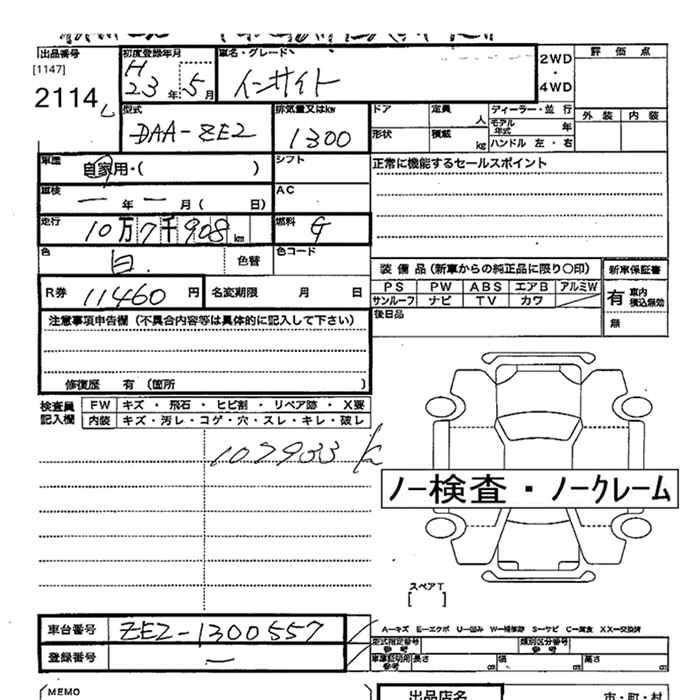 出品番号
[1147]
2114
初度登録年月
H
23年5月
車名・グレード
インサイト
2WD
・
4WD
評 価 点
外 装 内 装
型式
DAA-ZE2
排気量又はkw
1300
ドア
定員
人
ディーラー・並 行
モデル年式
年
形状
積載
kg
ハンドル 左・右
車歴
自家用・( )
シフト
正常に機能するセールスポイント
車検
ー年ー月( 日)
AC
走行
10万7千908km
燃料
G
色
白.
色替
色コード
装 備 品 (新車からの純正品に限り○印)
新車保証書
PS PW ABS エアB アルミW
サンルーフ ナビ TV カワ
有 車内
積込無効
無
後日品
R券 11460 円
名変期限 月 日
注意事項申告欄(不具合内容等は具体的に記入して下さい)
修復歴 有 (箇所 )
検査員
記入欄
FW キズ・飛石・ヒビ割・リペア跡・X要
内装 キズ・汚レ・コゲ・穴・スレ・キレ・破レ
107933 k
ノー検査・ノークレーム
スペアT
[ ]
車台番号 ZE2-1300557
登録番号 ー
A―キズ E―エクボ U―凹み W―補修跡 S―サビ C―腐食 XX―交換済
型式指定番号
参 考
類別区分番号
参 考
車庫証明用
参考
長さ
幅
高さ
MEMO
出品店名
市・町・村